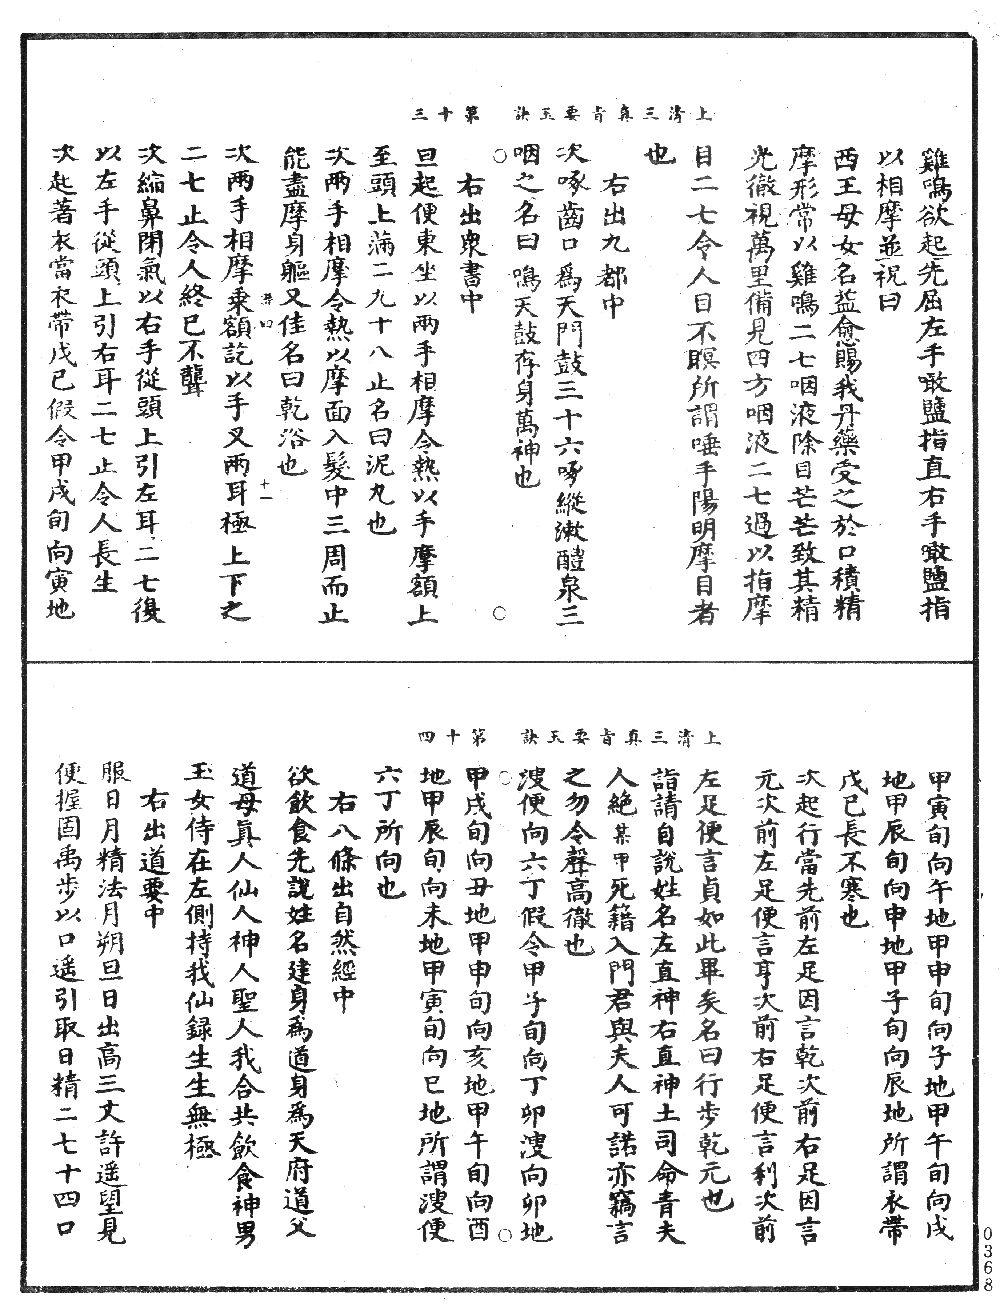 上清三真旨要玉訣　第十三
雞鳴欲起先屈左手噉鹽指直右手噉鹽指
以相摩並祝曰
西王母女名益愈賜我丹藥受之於口積精
摩形常以雞鳴二七咽液除目芒芒致其精
光徹視萬里備見四方咽液二七過以指摩
目二七令人目不瞑所謂唾手陽明摩目者
也
右出九都中
次啄齒口為天門鼓三十六啄縱漱醴泉三
咽之名曰鳴天鼓存身萬神也
右出衆書中
旦起便東坐以兩手相摩令熱以手摩額上
至頭上滿二九十八止名曰泥丸也
次兩手相摩令熱以摩面入髮中三周而止
能盡摩身軀又佳名曰乾浴也
井四　十一
次兩手相摩乘額訖以手叉兩耳極上下之
二七止令人終已不聾
次縮鼻閉氣以右手從頭上引左耳二七復
以左手從頭上引右耳二七止令人長生
次起著衣當衣帶戊己假令甲戌旬向寅地
上清三真旨要玉訣　第十四
甲寅旬向午地甲申旬向子地甲午旬向戌
地甲辰旬向申地甲子旬向辰地所謂衣帶
戊己長不寒也
次起行當先前左足因言乾次前右足因言
元次前左足便言亨次前右足便言利次前
左足便言貞如此畢矣名曰行步乾元也
詣請自說姓名左直神右直神土司命青夫
人絶某甲死籍入門君與夫人可諾亦竊言
之勿令聲高徹也
溲便向六丁假令甲子旬向丁卯溲向卯地
甲戌旬向丑地甲申旬向亥地甲午旬向酉
地甲辰旬向未地甲寅旬向巳地所謂溲便
六丁所向也
右八條出自然經中
欲飲食先說姓名建身為道身為天府道父
道母真人仙人神人聖人我合共飲食神男
玉女侍在左側持我仙録生生無極
右出道要中
服日月精法月朔旦日出高三丈許遥望見
便握固禹步以口遥引取日精二七十四口
0368